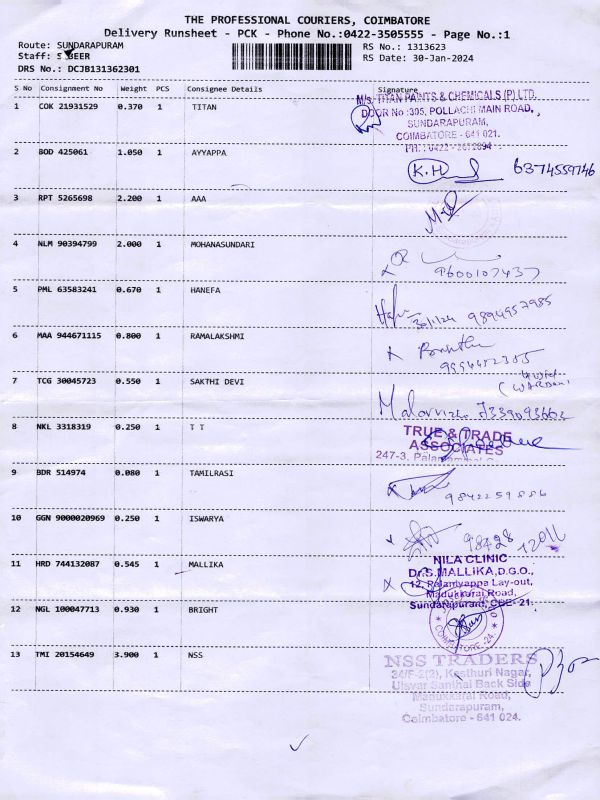 THE PROFESSIONAL COURIERS, COIMBATORE
Delivery Runsheet - PCK - Phone No.:0422-3505555 - Page No.:1
Route: SUNDARAPURAM
RS No.: 1313623
Staff: BEER
RS Date: 30-Jan-2024
DRS No.: DCJB131362301
S No Consignment No Weight PCS Consignee Details Signature
1 COK 21931529 0.370 1 TITAN
M/s. TITAN PAINTS & CHEMICALS (P) LTD.
DOOR No :305, POLLACHI MAIN ROAD,
SUNDARAPURAM,
COIMBATORE - 641 021.
2 BOD 425061 1.050 1 AYYAPPA
K.H 6374559746
3 RPT 5265698 2.200 1 AAA
4 NLM 90394799 2.000 1 MOHANASUNDARI
9600107437
5 PML 63583241 0.670 1 HANEFA
30/1/24 9894957985
6 MAA 944671115 0.800 1 RAMALAKSHMI
7 TCG 30045723 0.550 1 SAKTHI DEVI
(WARDEN)
8 NKL 3318319 0.250 1 T T
TRUE & TRADE
ASSOCIATES
247-3,
9 BDR 514974 0.080 1 TAMILRASI
9842259886
10 GGN 9000020969 0.250 1 ISWARYA
98428 12011
11 HRD 744132087 0.545 1 MALLIKA
NILA CLINIC
Dr.S.MALLIKA,D.G.O.,
12, Palaniyappa Lay-out,
Madukkarai Road,
Sundarapuram, CBE-21.
12 NGL 100047713 0.930 1 BRIGHT
COIMBATORE-24
13 TMI 20154649 3.900 1 NSS
NSS TRADERS
34/F-2(2), Kasthuri Nagar,
Back Side
Madukkarai Road,
Sundarapuram,
Coimbatore - 641 024.